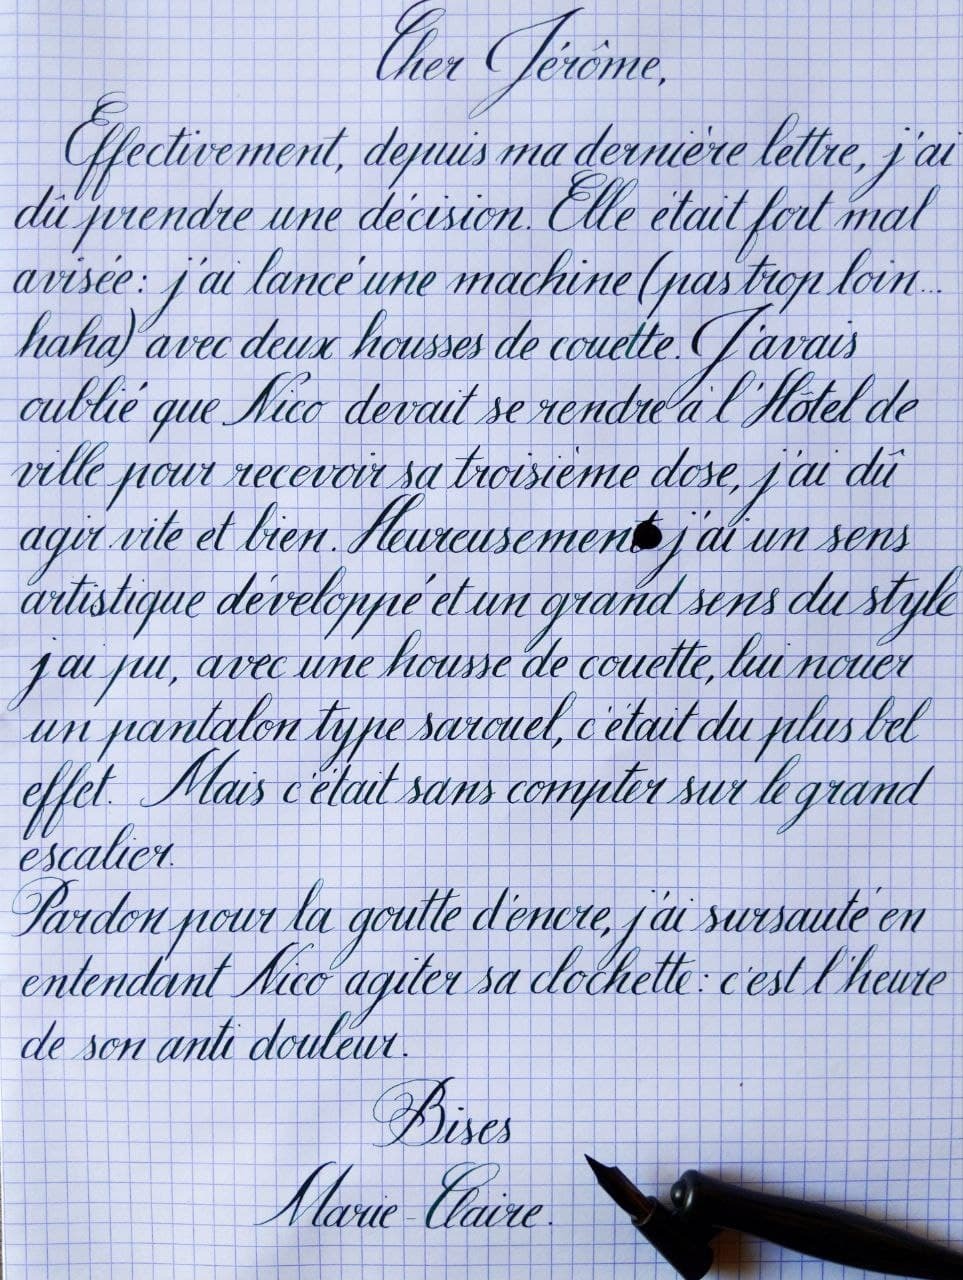 Cher Jérôme,
Effectivement, depuis ma dernière lettre, j'ai
dû prendre une décision. Elle était fort mal
avisée : j'ai lancé une machine (pas trop loin...
haha) avec deux housses de couette. J'avais
oublié que Nico devait se rendre à l'Hôtel de
ville pour recevoir sa troisième dose, j'ai dû
agir vite et bien. Heureusement j'ai un sens
artistique développé et un grand sens du style
j'ai pu, avec une housse de couette, lui nouer
un pantalon type sarouel, c'était du plus bel
effet. Mais c'était sans compter sur le grand
escalier.
Pardon pour la goutte d'encre, j'ai sursauté en
entendant Nico agiter sa clochette : c'est l'heure
de son anti douleur.
Bises
Marie-Claire.